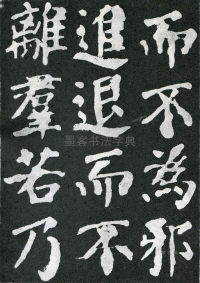 而不為邪
進退而不
離羣若乃
墨客书法字典